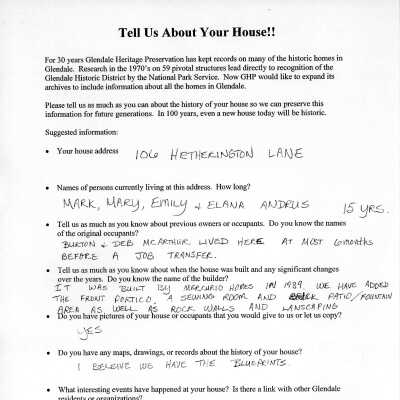 Tell Us About Your House!!
For 30 years Glendale Heritage Preservation has kept records on many of the historic homes in
Glendale. Research in the 1970's on 59 pivotal structures lead directly to recognition of the
Glendale Historic District by the National Park Service. Now GHP would like to expand its
archives to include information about all the homes in Glendale.
Please tell us as much as you can about the history of your house so we can preserve this
information for future generations. In 100 years, even a new house today will be historic.
Suggested information:
• Your house address 106 HETHERINGTON LANE
• Names of persons currently living at this address. How long?
MARK, MARY, EMILY & ELANA ANDRUS 15 YRS.
• Tell us as much as you know about previous owners or occupants. Do you know the names
of the original occupants?
BURTON & DEB MCARTHUR LIVED HERE AT MOST 6 months
BEFORE A JOB TRANSFER.
• Tell us as much as you know about when the house was built and any significant changes
over the years. Do you know the name of the builder?
IT WAS BUILT BY MERCURIO HOMES IN 1989. WE HAVE ADDED
THE FRONT PORTICO, A SEWING ROOM AND PATIO/FOUNTAIN
AREA AS WELL AS ROCK WALLS AND LANSCAPING
• Do you have pictures of your house or occupants that you would give to us or let us copy?
YES
• Do you have any maps, drawings, or records about the history of your house?
I BELIEVE WE HAVE THE BLUEPRINTS.
• What interesting events have happened at your house? Is there a link with other Glendale
residents or organizations?